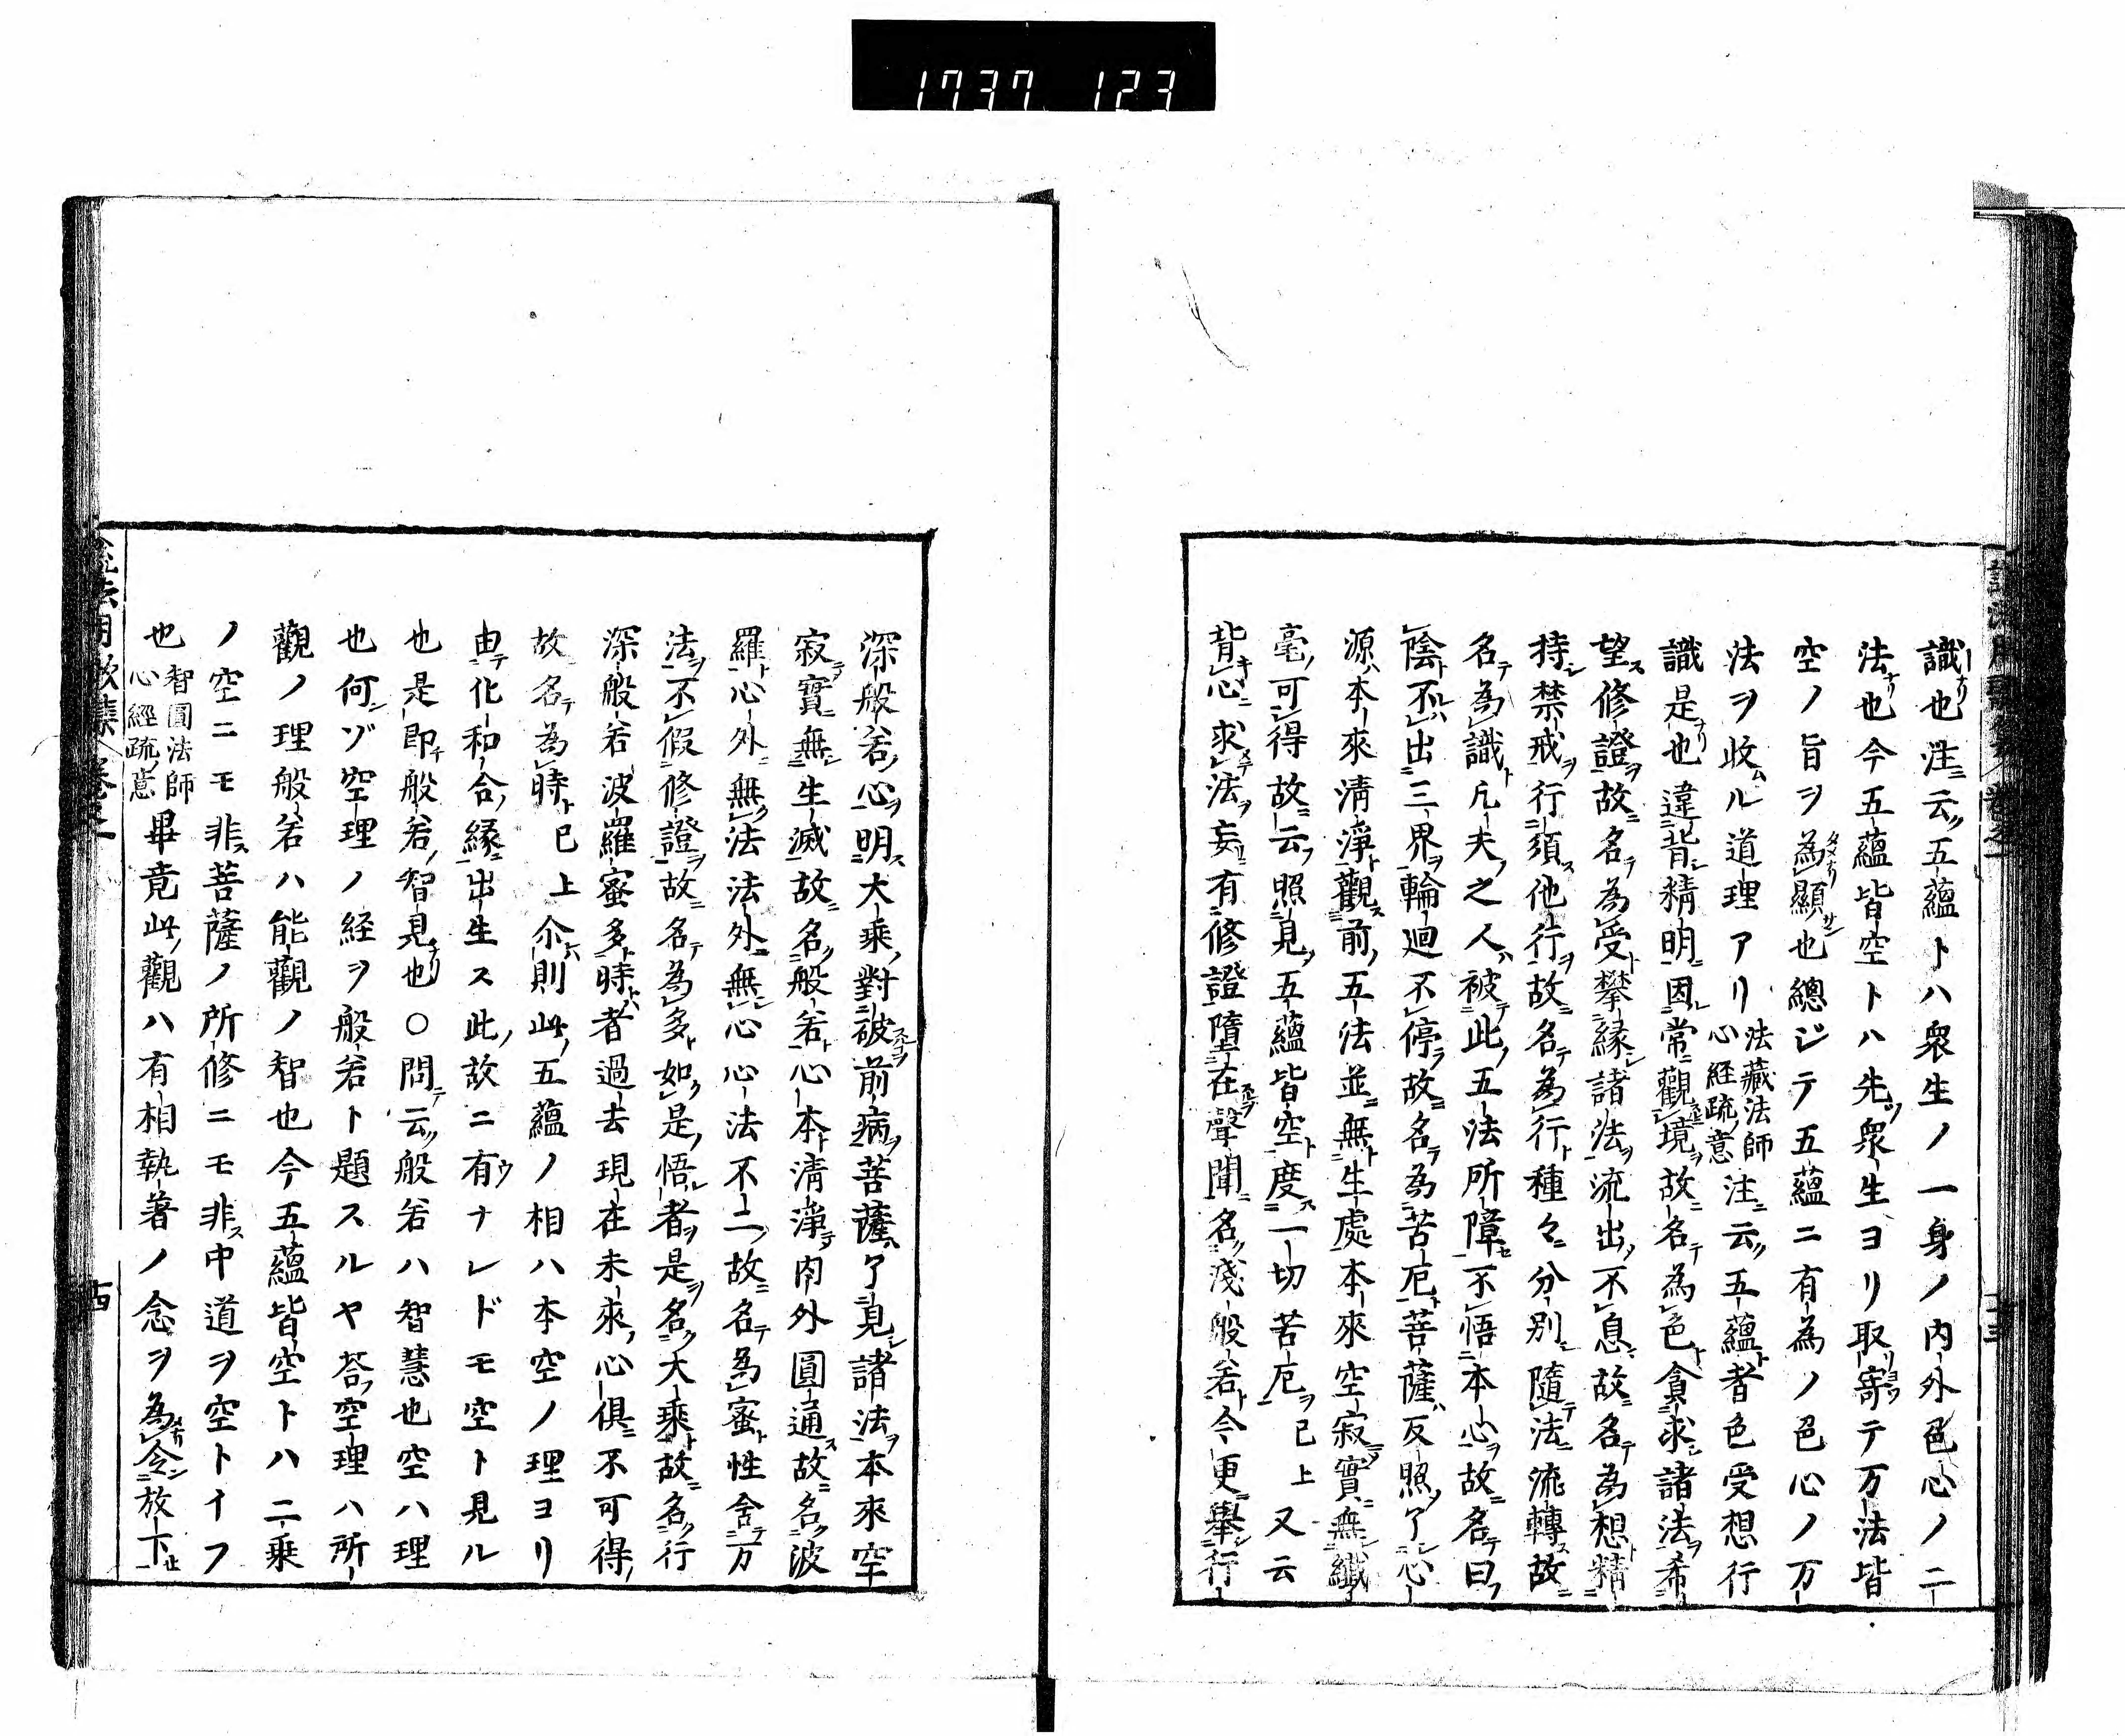 1737 123
識也注云五蘊トハ衆生ノ一身ノ内外色心ノ二
法也今五蘊皆空トハ先衆生ヨリ取寄テ万法皆
空ノ旨ヲ為顯也總ジテ五蘊ニ有為ノ色心ノ万
法ヲ收ル道理アリ法藏法師心経疏意注云五蘊者色受想行
識是也違背精明因常觀境故名為色貪求諸法希
望修證故名為受攀縁諸法流出不息故名為想精
持禁戒行須他行故名為行種々分別隨法流轉故
名為識凡夫之人被此五法所障不悟本心故名曰
陰不出三界輪廻不停故名為苦厄菩薩反照了心
源本來清淨觀前五法並無生處本來空寂實無纖
毫可得故云照見五蘊皆空度一切苦厄已上又云
背心求法妄有修證墮在聲聞名淺般若今更舉行
深般若心明大乘對破前病菩薩了見諸法本來空
寂實無生滅故名般若心本清淨内外圓通故名波
羅心外無法法外無心心法不二故名為蜜性含万
法不假修證故名為多如是悟者是名大乘故名行
深般若波羅蜜多時者過去現在未來心俱不可得
故名為時已上尒則此五蘊ノ相ハ本空ノ理ヨリ
由化和合縁出生ス此故ニ有ナレドモ空ト見ル
也是即般若智見也○問云般若ハ智慧也空ハ理
也何ゾ空理ノ経ヲ般若ト題スルヤ荅空理ハ所
觀ノ理般若ハ能觀ノ智也今五蘊皆空トハ二乘
ノ空ニモ非菩薩ノ所修ニモ非中道ヲ空トイフ
也智圓法師心經疏意畢竟此觀ハ有相執著ノ念ヲ為令放下